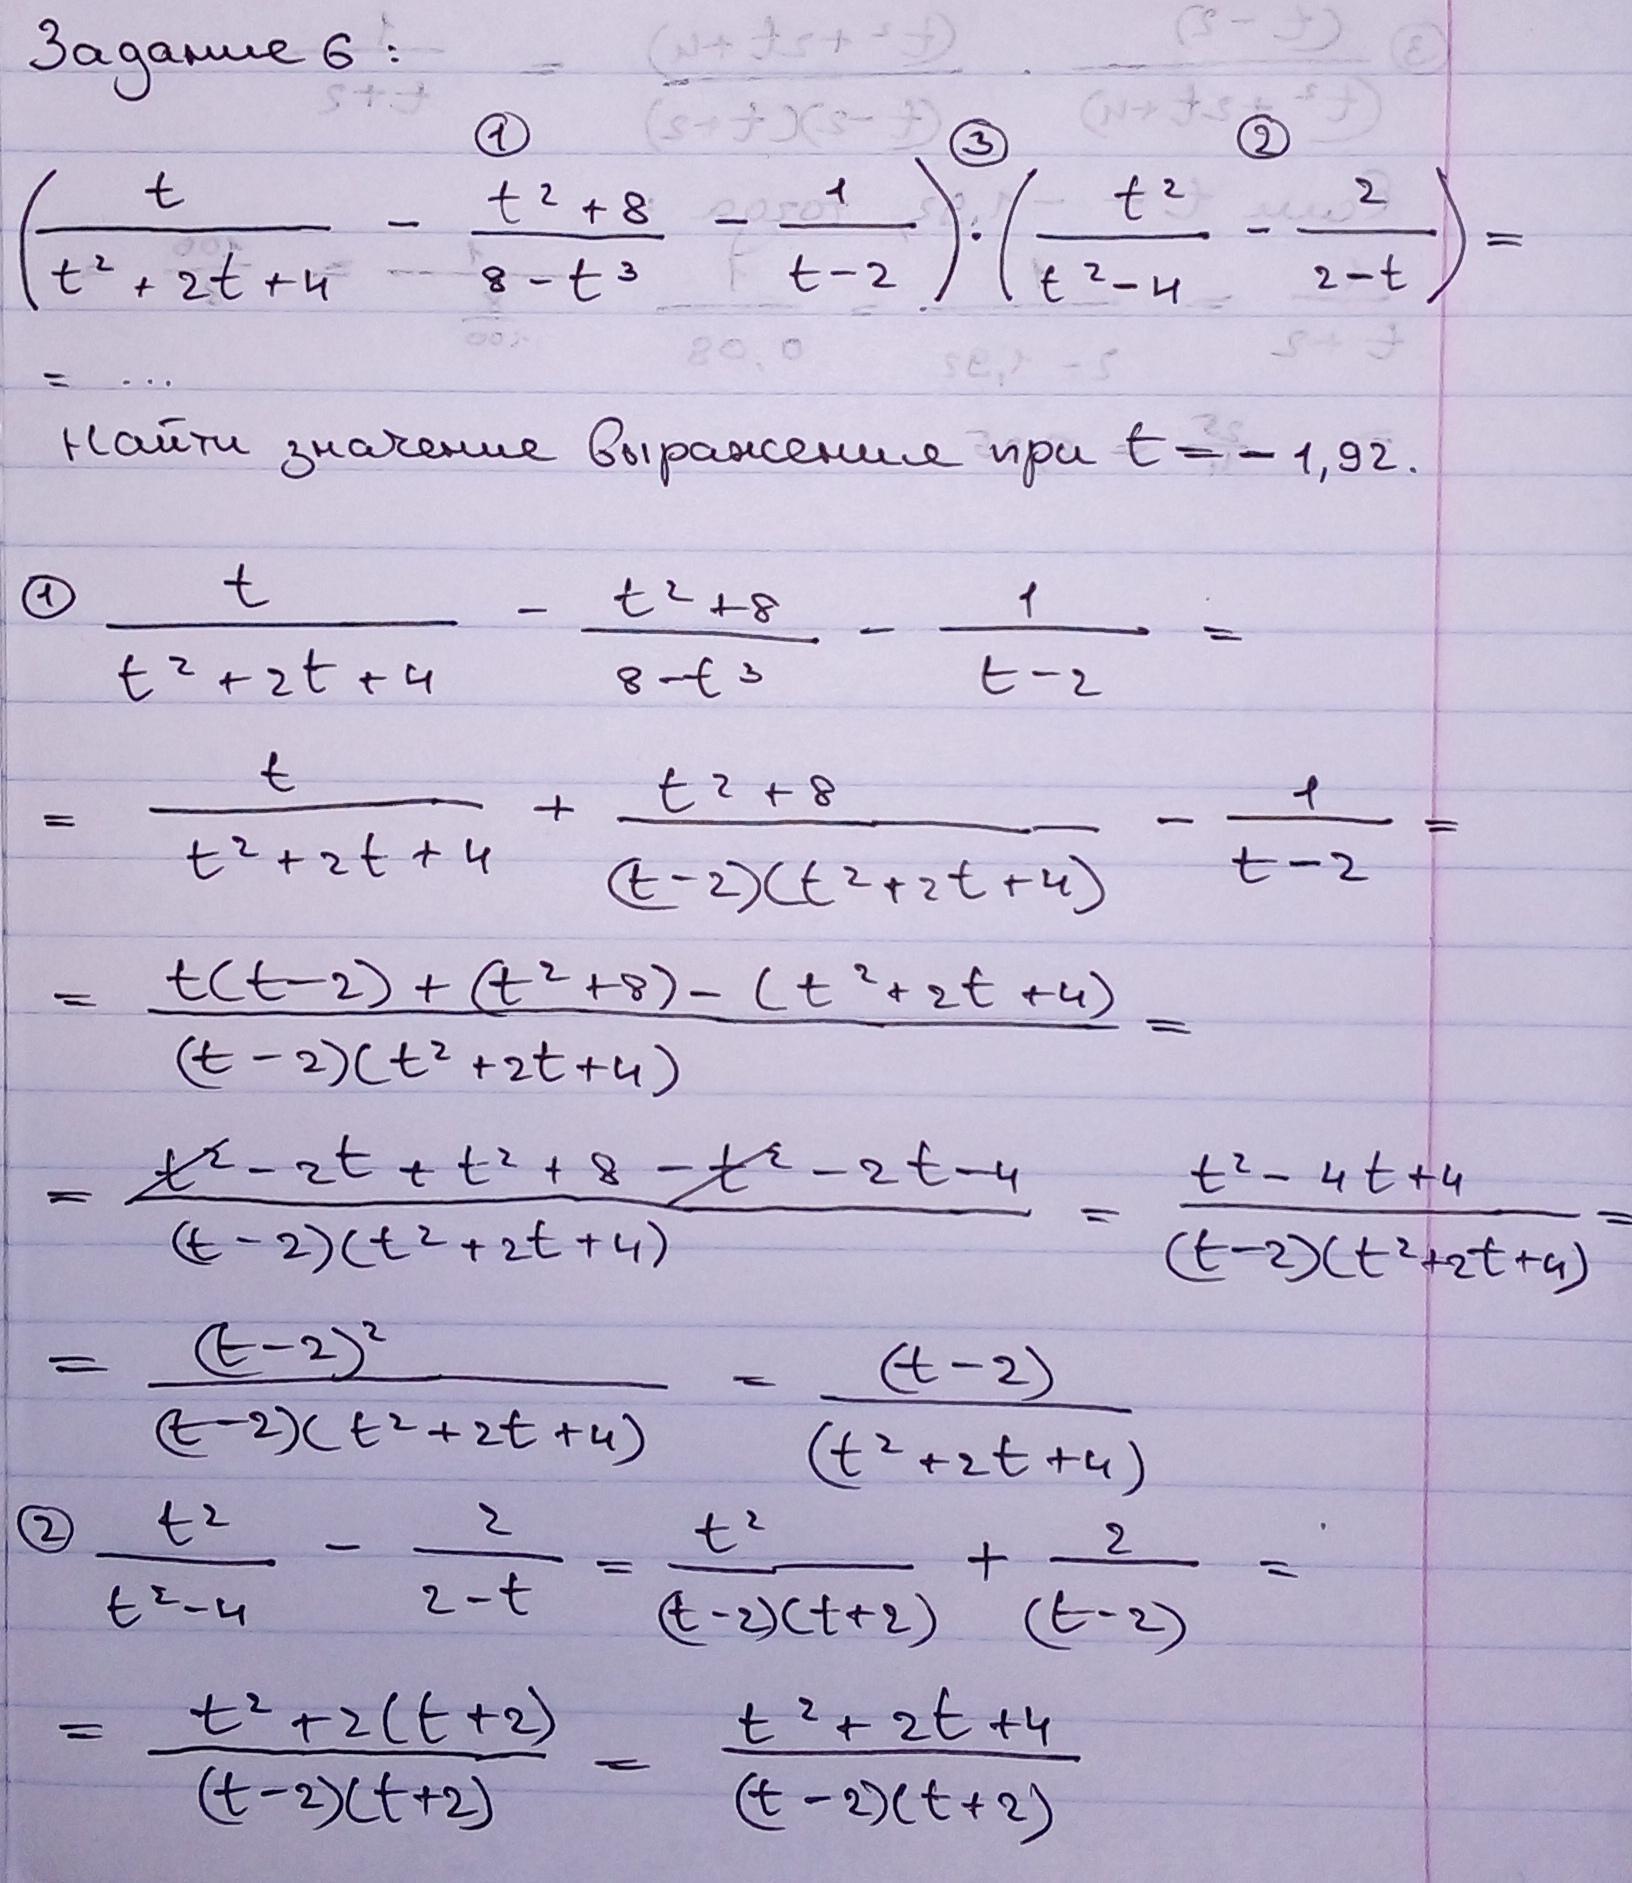 Задание 6:
① ③ ②
(t/(t²+2t+4) - (t²+8)/(8-t³) - 1/(t-2)) : (t²/(t²-4) - 2/(2-t)) =
= ...
Найти значение выражения при t = -1,92.
① t/(t²+2t+4) - (t²+8)/(8-t³) - 1/(t-2) =
= t/(t²+2t+4) + (t²+8)/((t-2)(t²+2t+4)) - 1/(t-2) =
= (t(t-2)+(t²+8)-(t²+2t+4))/((t-2)(t²+2t+4)) =
= (t²-2t+t²+8-t²-2t-4)/((t-2)(t²+2t+4)) = (t²-4t+4)/((t-2)(t²+2t+4)) =
= (t-2)²/((t-2)(t²+2t+4)) = (t-2)/(t²+2t+4)
② t²/(t²-4) - 2/(2-t) = t²/((t-2)(t+2)) + 2/(t-2) =
= (t²+2(t+2))/((t-2)(t+2)) = (t²+2t+4)/((t-2)(t+2))